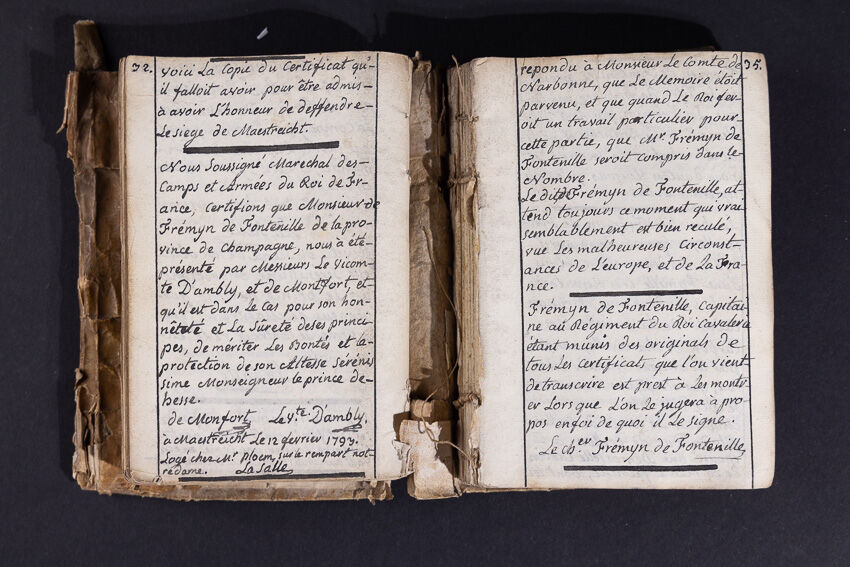 32.
Voici La Copie du Certificat qu'-
il falloit avoir pour être admis-
à avoir L'honneur de deffendre-
Le siege de Maestreicht.
Nous Soussigné Marechal des-
Camps et Armées du Roi de Fr-
ance, Certifions que Monsieur de
Frémyn de Fontenille de la pro-
vince de Champagne, nous à été-
présenté par Messieurs Le vicom-
te D'ambly, et de Montfort, et
qu'il est dans Le Cas pour son hon-
nêteté et La Sûreté de ses princi-
pes, de mériter Les Bontés et la-
protection de son Altesse Sérénis
sime Monseigneur le prince de-
hesse.
de Monfort Le V.te D'ambly.
à Maestreicht Le 12 fevrier 1793.
Logé chez Mr. Ploem, sur le rempart not-
re dame. La Salle
35.
repondu à Monsieur Le Comte de
Narbonne, que Le Memoire étoit
parvenu, et que quand Le Roi fer-
oit un travail particulier pour-
cette partie, que Mr. Frémyn de
Fontenille seroit compris dans le
Nombre.
Le dit Frémyn de Fontenille, at
tend toujours ce moment qui vrai
semblablement est bien reculé,
vue Les malheureuses Circonst-
ances de L'europe, et de La Fra-
nce.
Frémyn de Fontenille, Capitai-
ne au Régiment du Roi Cavalerie
étant munis des originals de
tous Les Certificats que l'on vient
de transcrire est prest à Les montr
er Lors que L'on Le jugera à pro-
pos en foi de quoi il Le signe.
Le ch.er Frémyn de Fontenille,